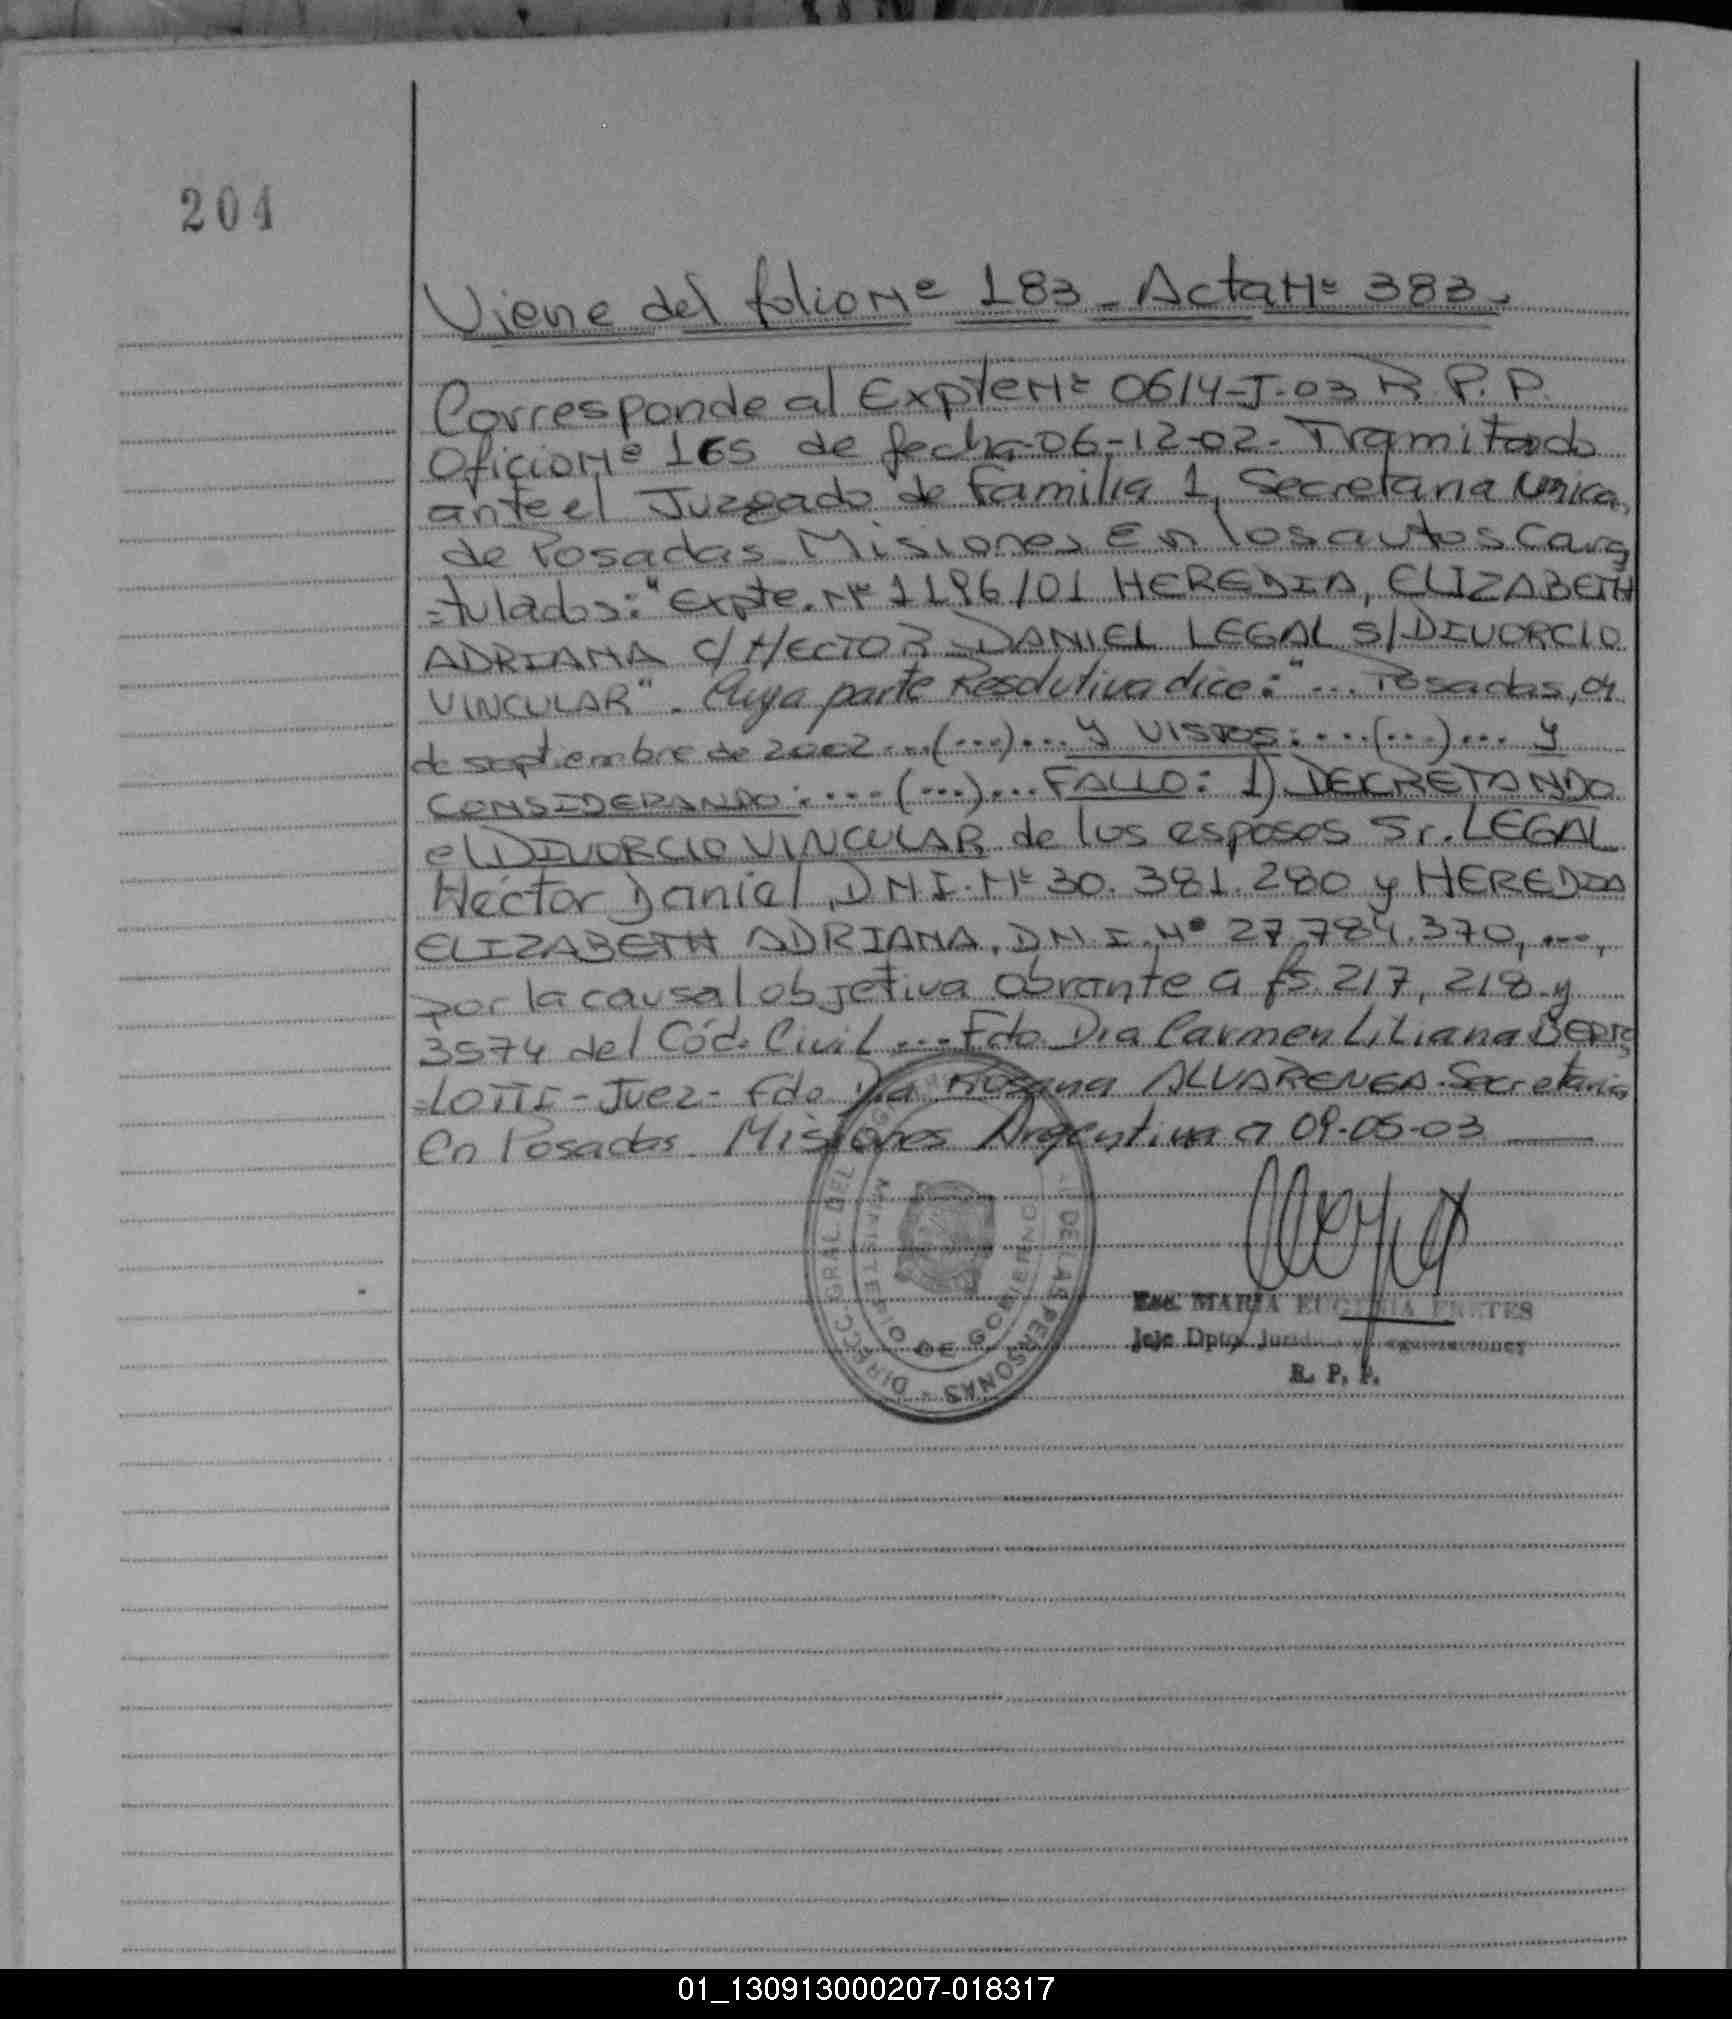 204
Viene del folio Nº 183 - Acta Nº 383.
Corresponde al Expte Nº 0614-J-03 R.P.P.
Oficio Nº 165 de fecha 06-12-02. Tramitado
ante el Juzgado de Familia 1, Secretaria Unica,
de Posadas Misiones En los autos Cara
-tulados: "Expte. Nº 1196/01 HEREDIA, ELIZABETH
ADRIANA C/ HECTOR DANIEL LEGAL S/DIVORCIO
VINCULAR". Cuya parte Resolutiva dice: "... Posadas, 04
de septiembre de 2002 ...(...)... Y VISTOS: ...(...)... Y
CONSIDERANDO: ...(...)... FALLO: 1) DECRETANDO
el DIVORCIO VINCULAR de los esposos Sr. LEGAL
Héctor Daniel, D.N.I. Nº 30.381.280 y HEREDIA
ELIZABETH ADRIANA, D.N.I. Nº 27.784.370, ...,
por la causal objetiva obrante a fs. 217, 218 y
3574 del Cód. Civil ... Fdo Dra Carmen Liliana
-LOTTI - Juez - Fdo Dra Rosana ALVARENGA - Secretaria
En Posadas Misiones Argentina a 09-05-03
DIRECC. GRAL. DEL DE LAS PERSONAS
MINISTERIO DE GOBIERNO
Esc. MARIA EUGENIA FRETES
Jefe Dpto.
R. P. P.
01_130913000207-018317